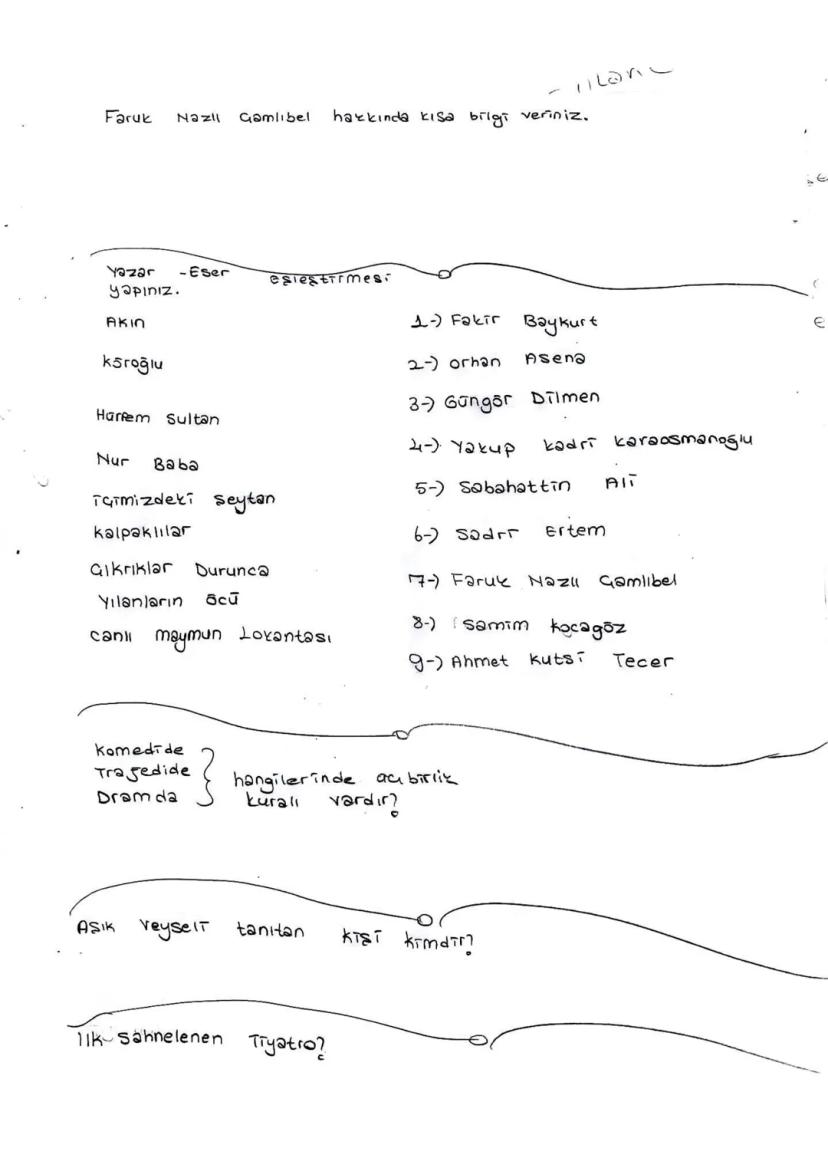 Faruk Nazlı Çamlıbel hakkında kısa bilgi veriniz.
Yazar -Eser eşleştirmesi
yapınız.
Akın
Köroğlu
Hürrem Sultan
Nur Baba
içimizdeki şeytan
kalpaklılar
Çıkrıklar Durunca
Yılanların öcü
canlı maymun Lokantası
1-) Fakir Baykurt
2-) orhan Asena
3-) Güngör Dilmen
4-) Yakup kadri karaosmanoğlu
5-) Sabahattin Ali
6-) Sadri Ertem
7-) Faruk Nazlı Çamlıbel
8-) samim kocagöz
9-) Ahmet kutsi Tecer
Komedide
Trajedide
Dramda
hangilerinde acı birlik
kuralı vardır?
Aşık veyseli tanıtan kişi kimdir?
ilk sahnelenen Tiyatro?